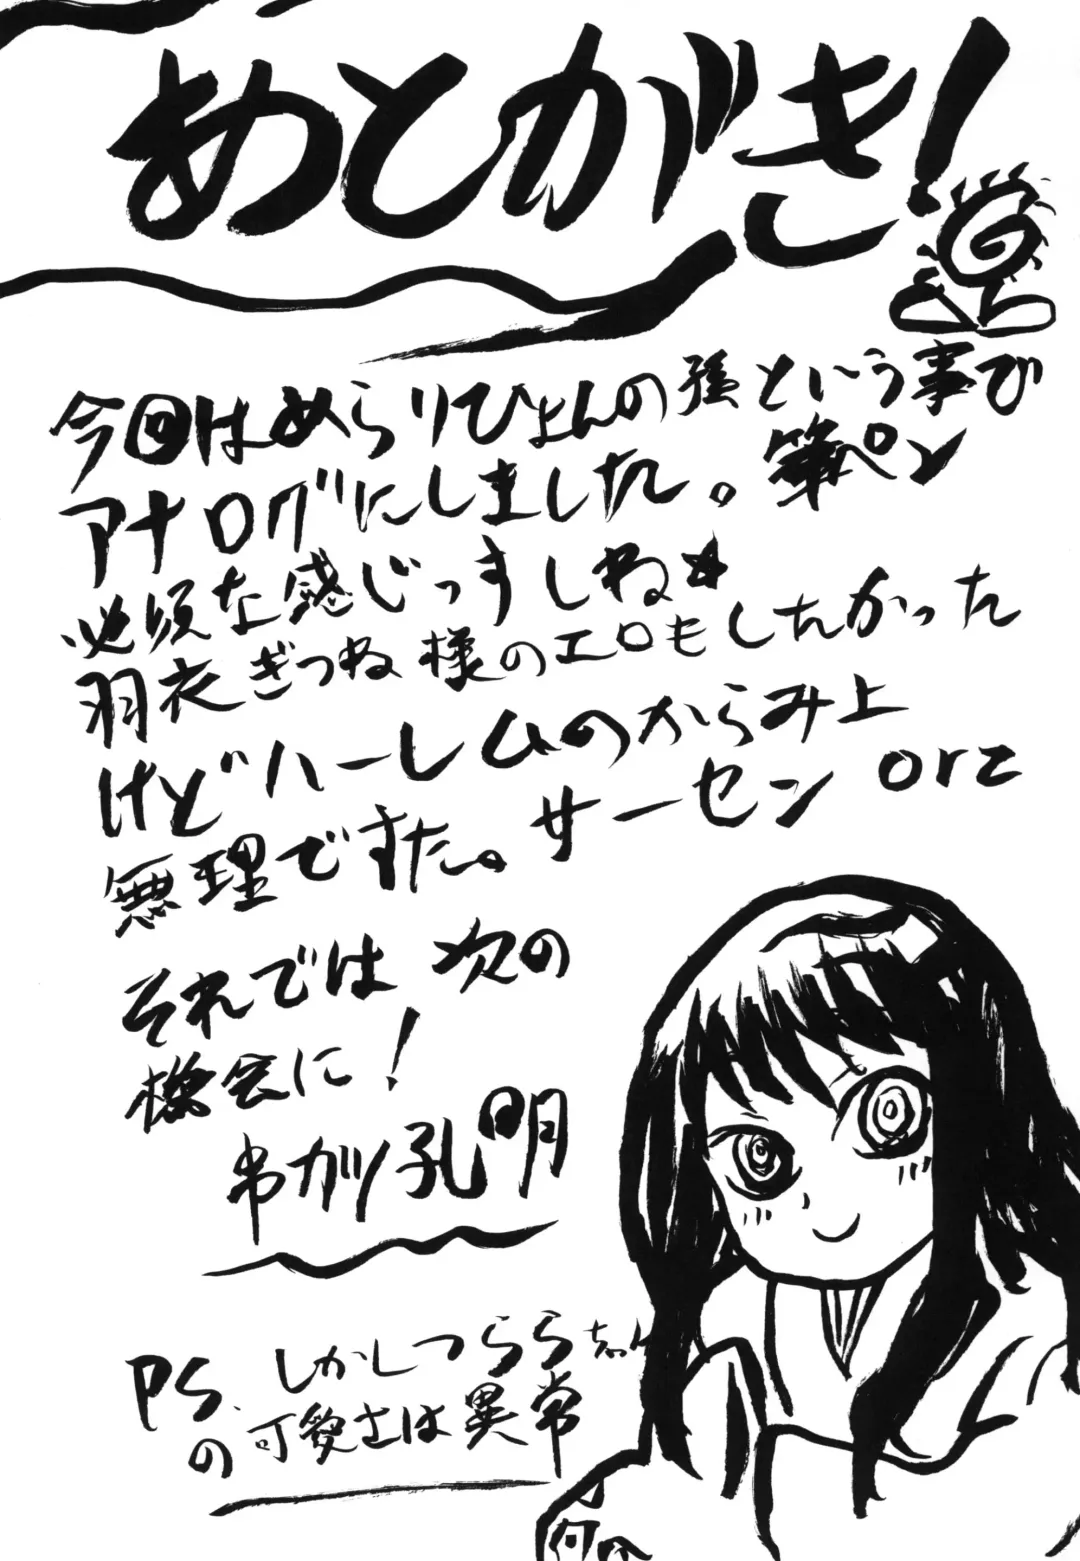 あとがき!
今回はぬらりひょんの孫という事で
アナログにしました。筆ペン
必須な感じっすしね★
羽衣ぎつね様のエロもしたかった
けどハーレムのからみ上
無理ですた。サーセン orz
それでは 次の
機会に!
串カツ孔明
PS. しかしつららちゃん
の可愛さは異常
何か